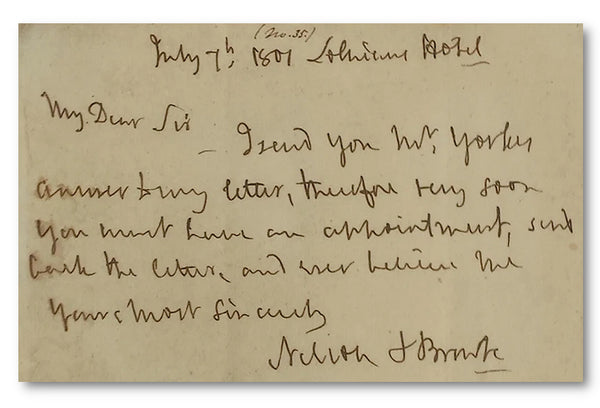 (No. 35.)
July 7th, 1801 Lothians Hotel
My Dear Sir
_ I send you Mr. Yorkes
answer to my letter, therefore very soon
you must have an appointment, send
back the letter, and ever believe me
yours most sincerely
Nelson & Bronte